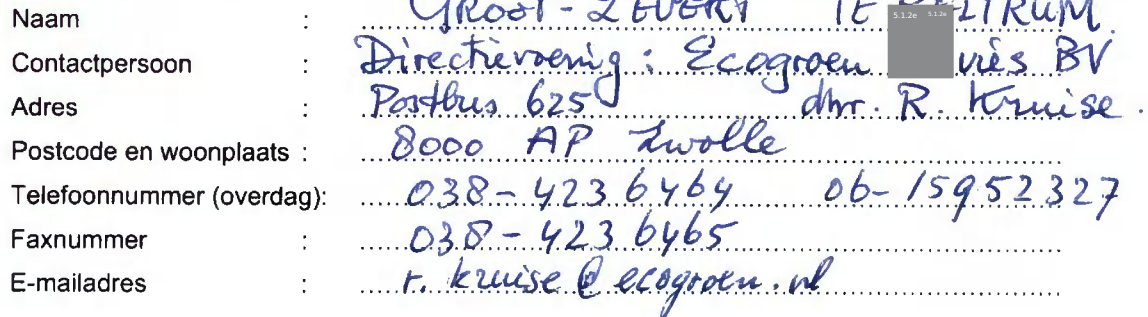 Naam : GROOT - ZEVERT TE BELTRUM
5.1.2e 5.1.2e
Contactpersoon : Directievoering : Ecogroen viès BV
Adres : Postbus 625 dhr. R. Kruise.
Postcode en woonplaats : 8000 AP Zwolle
Telefoonnummer (overdag): 038-4236464 06-15952327
Faxnummer : 038-4236465
E-mailadres : r.kruise@ecogroen.nl